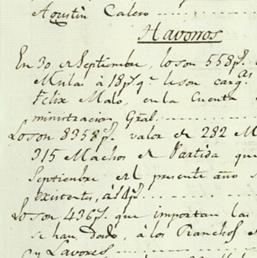 Agustin Calero
Havonos
En 30, e Septiembre, lo son 558p.s
Mula à 18p.s q.e le son carg.as
Felix Malo, en la Cuenta
ministracion Gral.
Lo son 8358p.s valor de 282 M
315 Machos e Partida que
Septiembre el presente año s
existente, à 4p.s
Lo son 436p.s que importan la
se han dado, à los Ranchos e
y Lavores